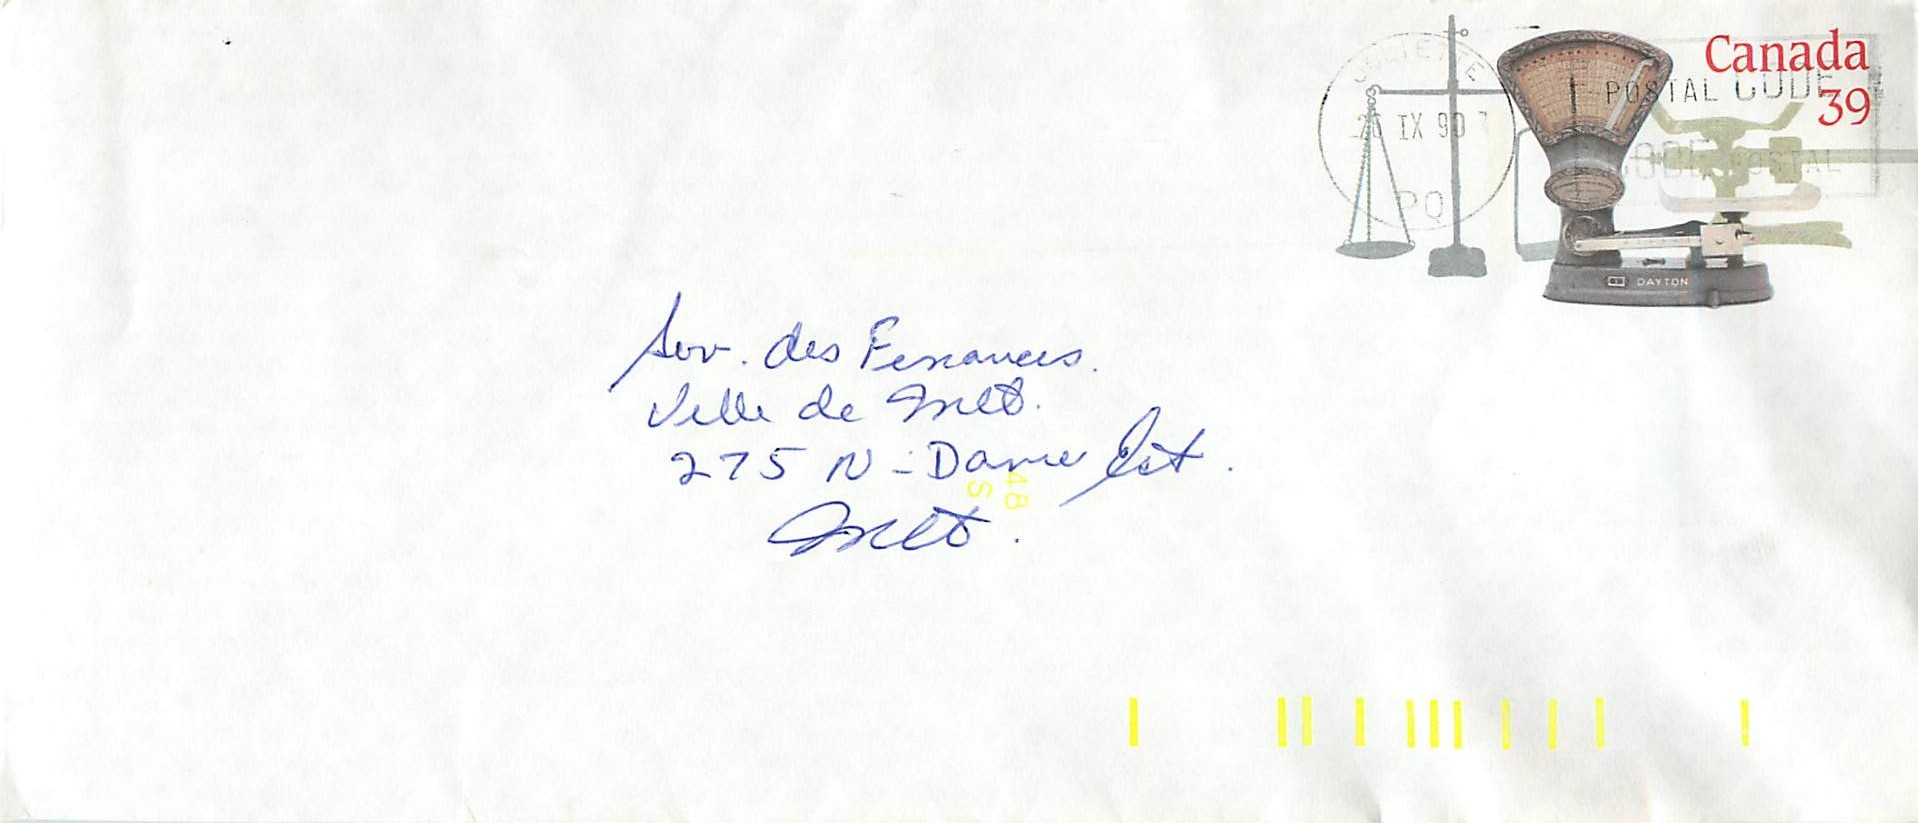 Canada
39
POSTAL CODE
CODE POSTAL
JOLIETTE
IX 90
PQ
DAYTON
Serv. des Finances.
Ville de Mtl.
275 N-Dame Est.
Mtl.
48
S